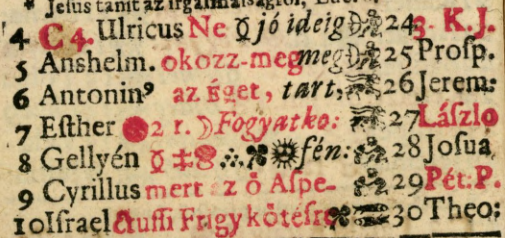 * Jesus tanit az irgalmasságról,
4 C 4. Ulricus Ne ☿ jó ideig 24 3. K. J.
5 Anshelm. okozz-meg meg 25 Prosp.
6 Antoninꝰ az Éget, tart, 26 Jerem:
7 Esther 2 r. ☽ Fogyatko: 27 László
8 Gellyén ☿ fén: 28 Josua
9 Cyrillus mert az ő Aspe- 29 Pét: P.
10 Israel ctussi Frigy kötésre 30 Theo: